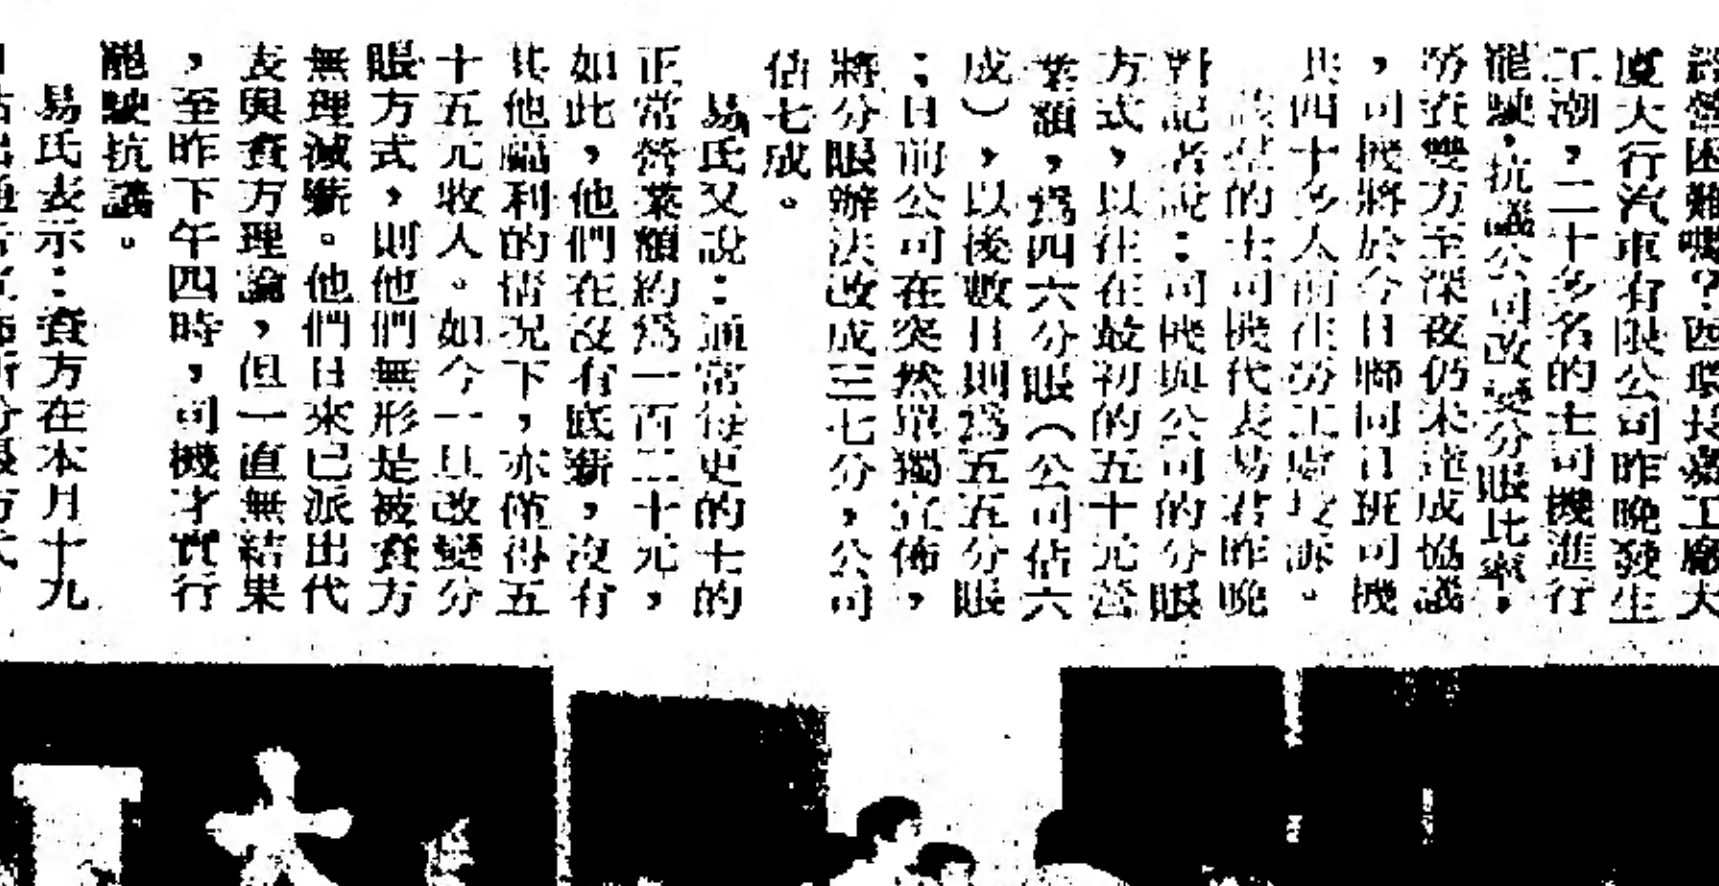 經營困難嗎？西環長嘉工廠大
廈大行汽車有限公司昨晚發生
工潮，二十多名的士司機進行
罷駛，抗議公司改變分賬比率，
勞資雙方至深夜仍未達成協議
，司機將於今日聯同日班司機
共四十多人前往勞工處投訴。
該幫的士司機代表易君昨晚
對記者說：司機與公司的分賬
方式，以往在最初的五十元營
業額，為四六分賬（公司佔六
成），以後數目則為五五分賬
；日前公司在突然單獨宣佈，
將分賬辦法改成三七分，公司
佔七成。
易氏又說：通常每更的士的
正常營業額約為一百二十元，
如此，他們在沒有底薪，沒有
其他福利的情況下，亦僅得五
十五元收入。如今一旦改變分
賬方式，則他們無形是被資方
無理減薪。他們日來已派出代
表與資方理論，但一直無結果
，至昨下午四時，司機才實行
罷駛抗議。
易氏表示：資方在本月十九
大